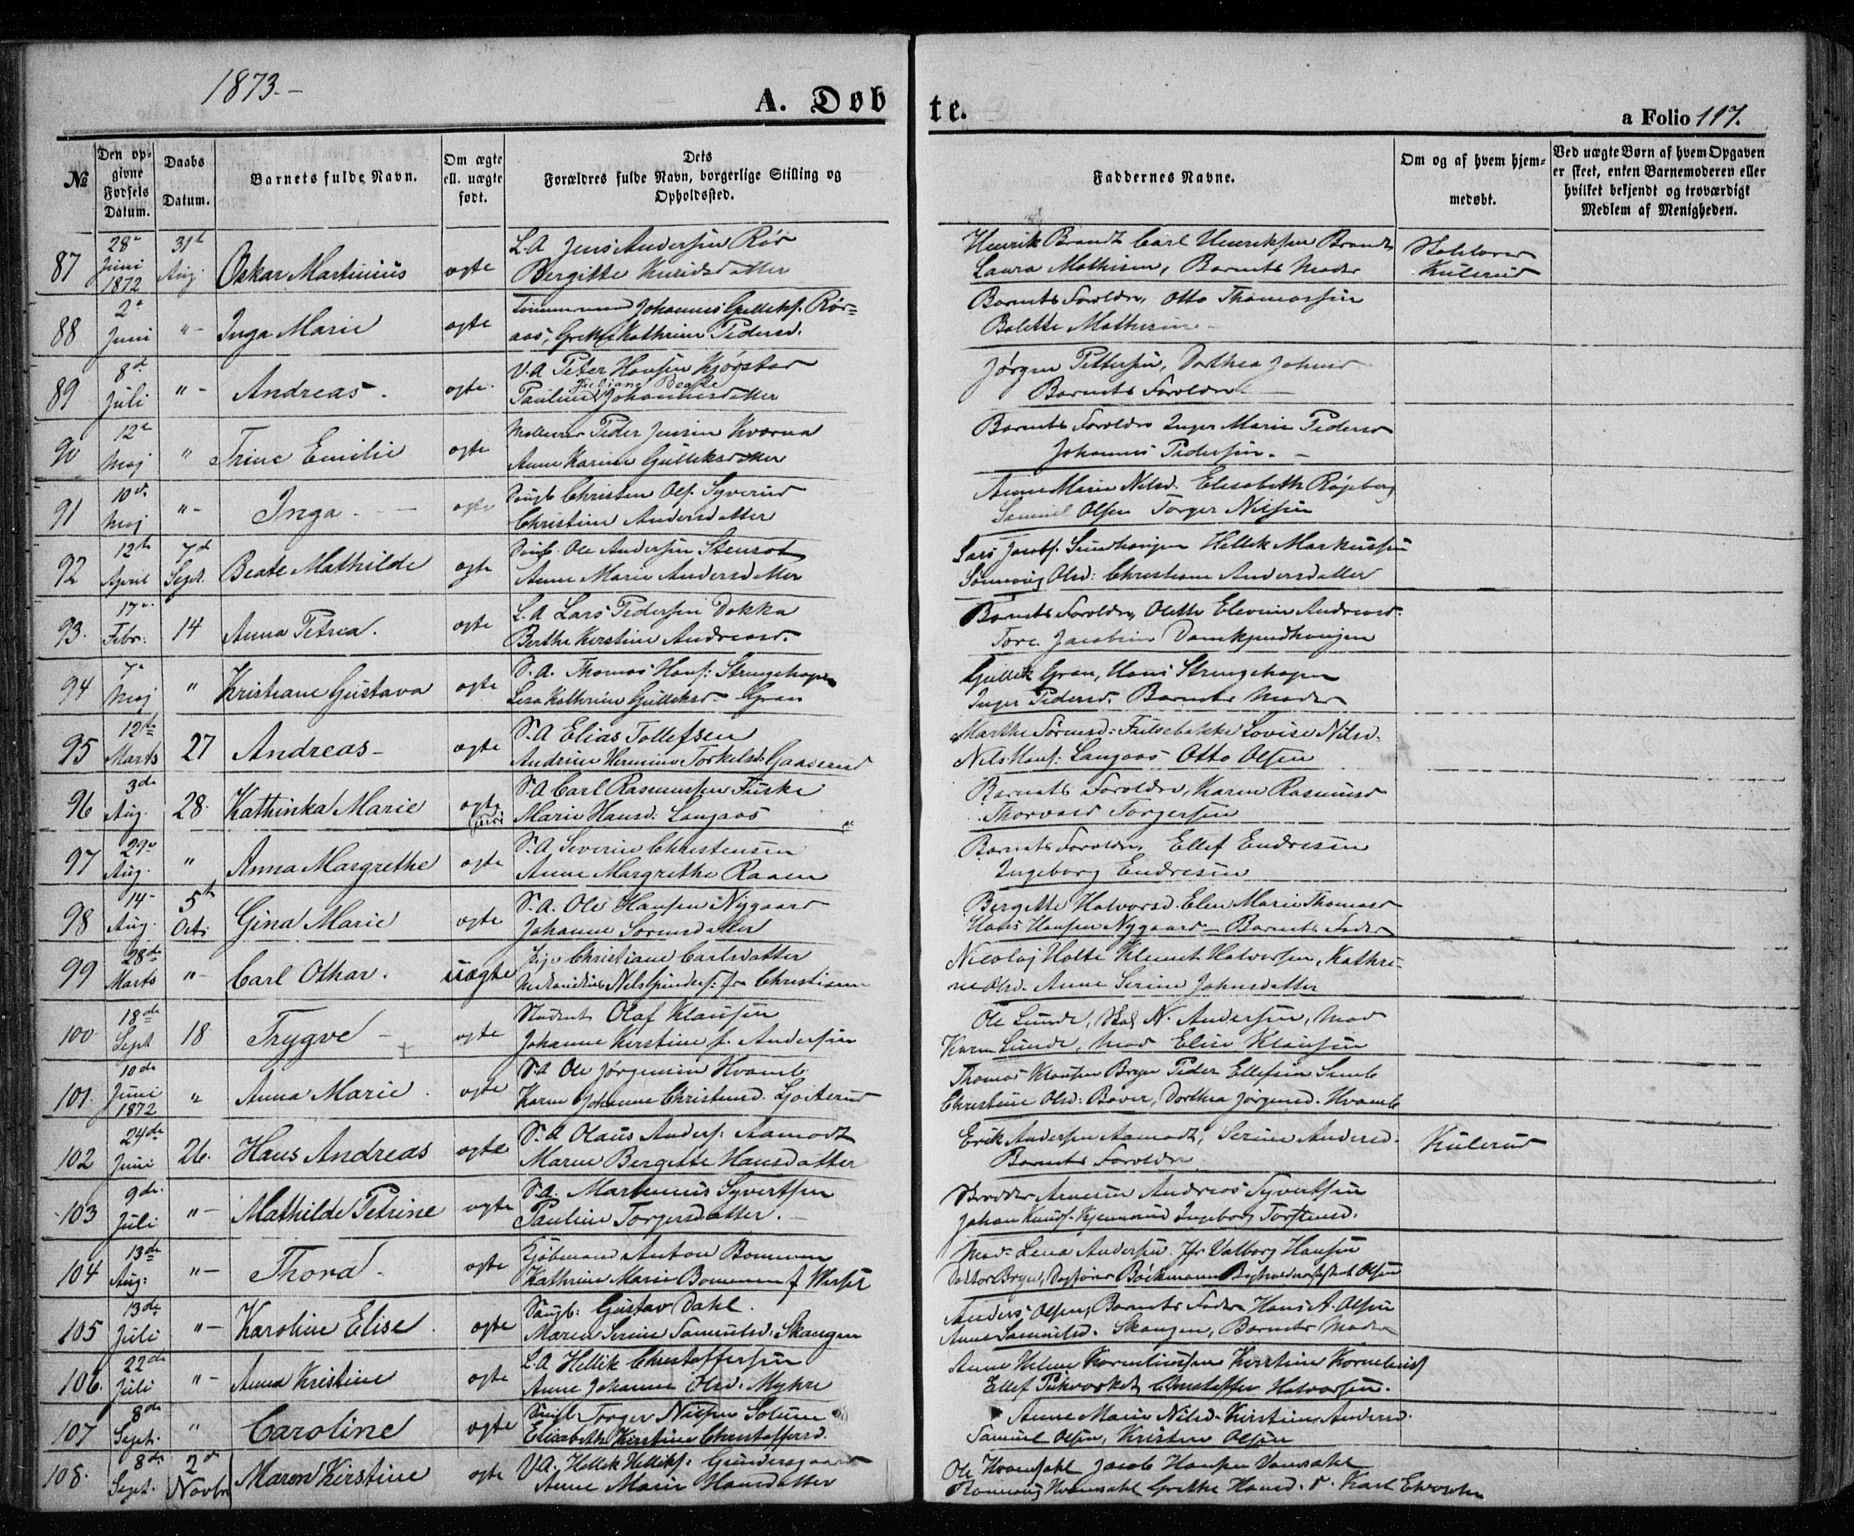 1873.-
A. Døbte.
a Folio 117.
№
Den op-
givne
Fødsels
Datum.
Daabs
Datum.
Barnets fulde Navn.
Om ægte
ell. uægte
født.
Dets
Forældres fulde Navn, borgerlige Stilling og
Opholdssted.
Faddernes Navne.
Om og af hvem hjem-
medøbt.
Ved uægte Børn af hvem Opgaven
er skeet, enten Barnemoderen eller
hvilket bekjendt og troværdigt
Medlem af Menigheden.
87 28de Juni 1872 31te Aug. Oskar Martinius ægte L.A. Jens Andersen Rør
Bergitte
Henrik Brandt Carl Henriksen Brandt
Laura Mathisen, Barnets Moder
Kulerud
88 2den Juni "- Inga Marie ægte Tømmermand Johannes Gulliks. Rør-
aas, Grethe Kathrine Pedersd.
Barnets Forældre, Otto Thomassen
Bolette Mathisen
89 8de Juli "- Andreas. ægte. V.A. Peter Hansen Kjørstad
Pauline Johannesdatter
Jørgen Pettersen, Dorthea
Barnets Forældre.
90 12te Maj " Trine Emilie ægte Peder Jensen Kværna
Anne Karine Gulliksdatter
Barnets Forældre Inger Marie Pedersd
Johannes Pedersen.
91 10de Maj "- Inga ægte Christen Ols. Syverud
Christine Andersdatter
Anne Marie Nilsd. Elisabeth Røgeberg
Samuel Olsen Torger Nilsen
92 12te April 7de Sept. Beate Mathilde ægte Ole Andersen Stensrot
Anne Marie Andersdatter
Lars Jacobs. Hellik Markussen
Olsd. Christiane Andersdatter
93. 17de Febr. 14 Anna Petrea. ægte L.A. Lars Pedersen Dokka
Berthe Kirstine Andreasd.
Barnets Forældre, Olette Elevine Andreasd.
Tore Jacobsen
94 7de Maj " Kristiane Gustava ægte S.A. Thomas Hans. Strengehagen
Lisa Kathrine Gulliksd. Gran
Gullik Gran, Hans Strengehagen
Inger Pedersd. Barnets Moder
95 12te Marts 27 Andreas- ægte S.A. Elias Tollefsen
Andrine Hermine Torkelsd. Gaaserud
Marthe Sørensd. Lovise Nilsd.
Nils Hans. Langaas Otto Olsen
96 3de Aug. 28. Kathinka Marie ægte S.A. Carl Rasmussen Fuske
Marie Hansd. Langaas
Barnets Forældre, Karen Rasmusd
Thorvald Torgersen
97 29de Aug. " Anna Margrethe ægte S.A. Severin Christensen
Anne Margrethe Raaen
Barnets Forældre, Ellef Endresen
Ingeborg Endresen
98 14de Aug. 5te Oct. Gina Marie ægte S.A. Ole Hansen Nygaard
Johanne Sørensdatter
Bergitte Halvorsd. Elen Marie Thomasd
Hans Hansen Nygaard - Barnets Fader
99 28de Marts "- Carl Othar. uægte Pige Christiane Carlsdatter
Nicolaj Holte Klemet Halvorsen, Kathri-
ne Olsd. Anne Serine Johnsdatter
100 18de Sept 18 Trygve - ægte Student Olaf Klausen
Johanne Kirstine f. Andersen
Ole Lunde, N. Andersen, Mad
Karen Lunde, Mad Elise Klausen
101. 10de Juni 1872 " Anna Marie. ægte S.A. Ole Jørgensen Hvamb
Karen Johanne Christensd.
Thomas Klausen Peder Ellefsen
Christine Olsd. Dorthea Jørgensd. Hvamb
102 24de Juni 26. Hans Andreas ægte S.A. Olaus Anders. Aamodt
Maren Bergitte Hansdatter
Erik Andersen Aamodt, Serine Andersd.
Barnets Forældre
Kulerud
103 9de Juli "- Mathilde Petrine ægte S.A. Martinius Syvertsen
Pauline Torgersdatter.
Arnesen Andreas Syvertsen
Johan Knuds. Ingeborg Torstensd.
104 13de Aug. "- Thora - ægte Kjøbmand Anton Bommen
Kathrine Marie Bommen f.
Mad. Lena Andersen. Jfr Valborg Hansen
Doktor Bryn, Bøckmann Olsen
105 13de Juli "- Karoline Elise ægte Gustav Dahl.
Maren Serine Samuelsd. Skangen
Anders Olsen, Barnets Fader Hans A. Olsen
Anne Samuelsd. Skangen, Barnets Moder
106. 22de Juli "- Anna Kristine ægte L.A. Hellik Christoffersen
Anne Johanne Olsd. Myhre
Anne Helene Korneliussen Kirstine Kornelius
Ellef Christoffer Halvorsen.
107 8de Sept. " Caroline ægte Torger Nilsen Solum
Elisabeth Kirstine Christoffersd.
Anne Marie Nilsd. Kirstine Andersd.
Samuel Olsen, Kristen Olsen
108. 8de Sept. 2den Novbr Maren Kirstine ægte V.A. Hellik Helliks. Gundersgaard
Anne Marie Hansdatter
Ole Jacob Hansen
Grethe Hansd. Karl